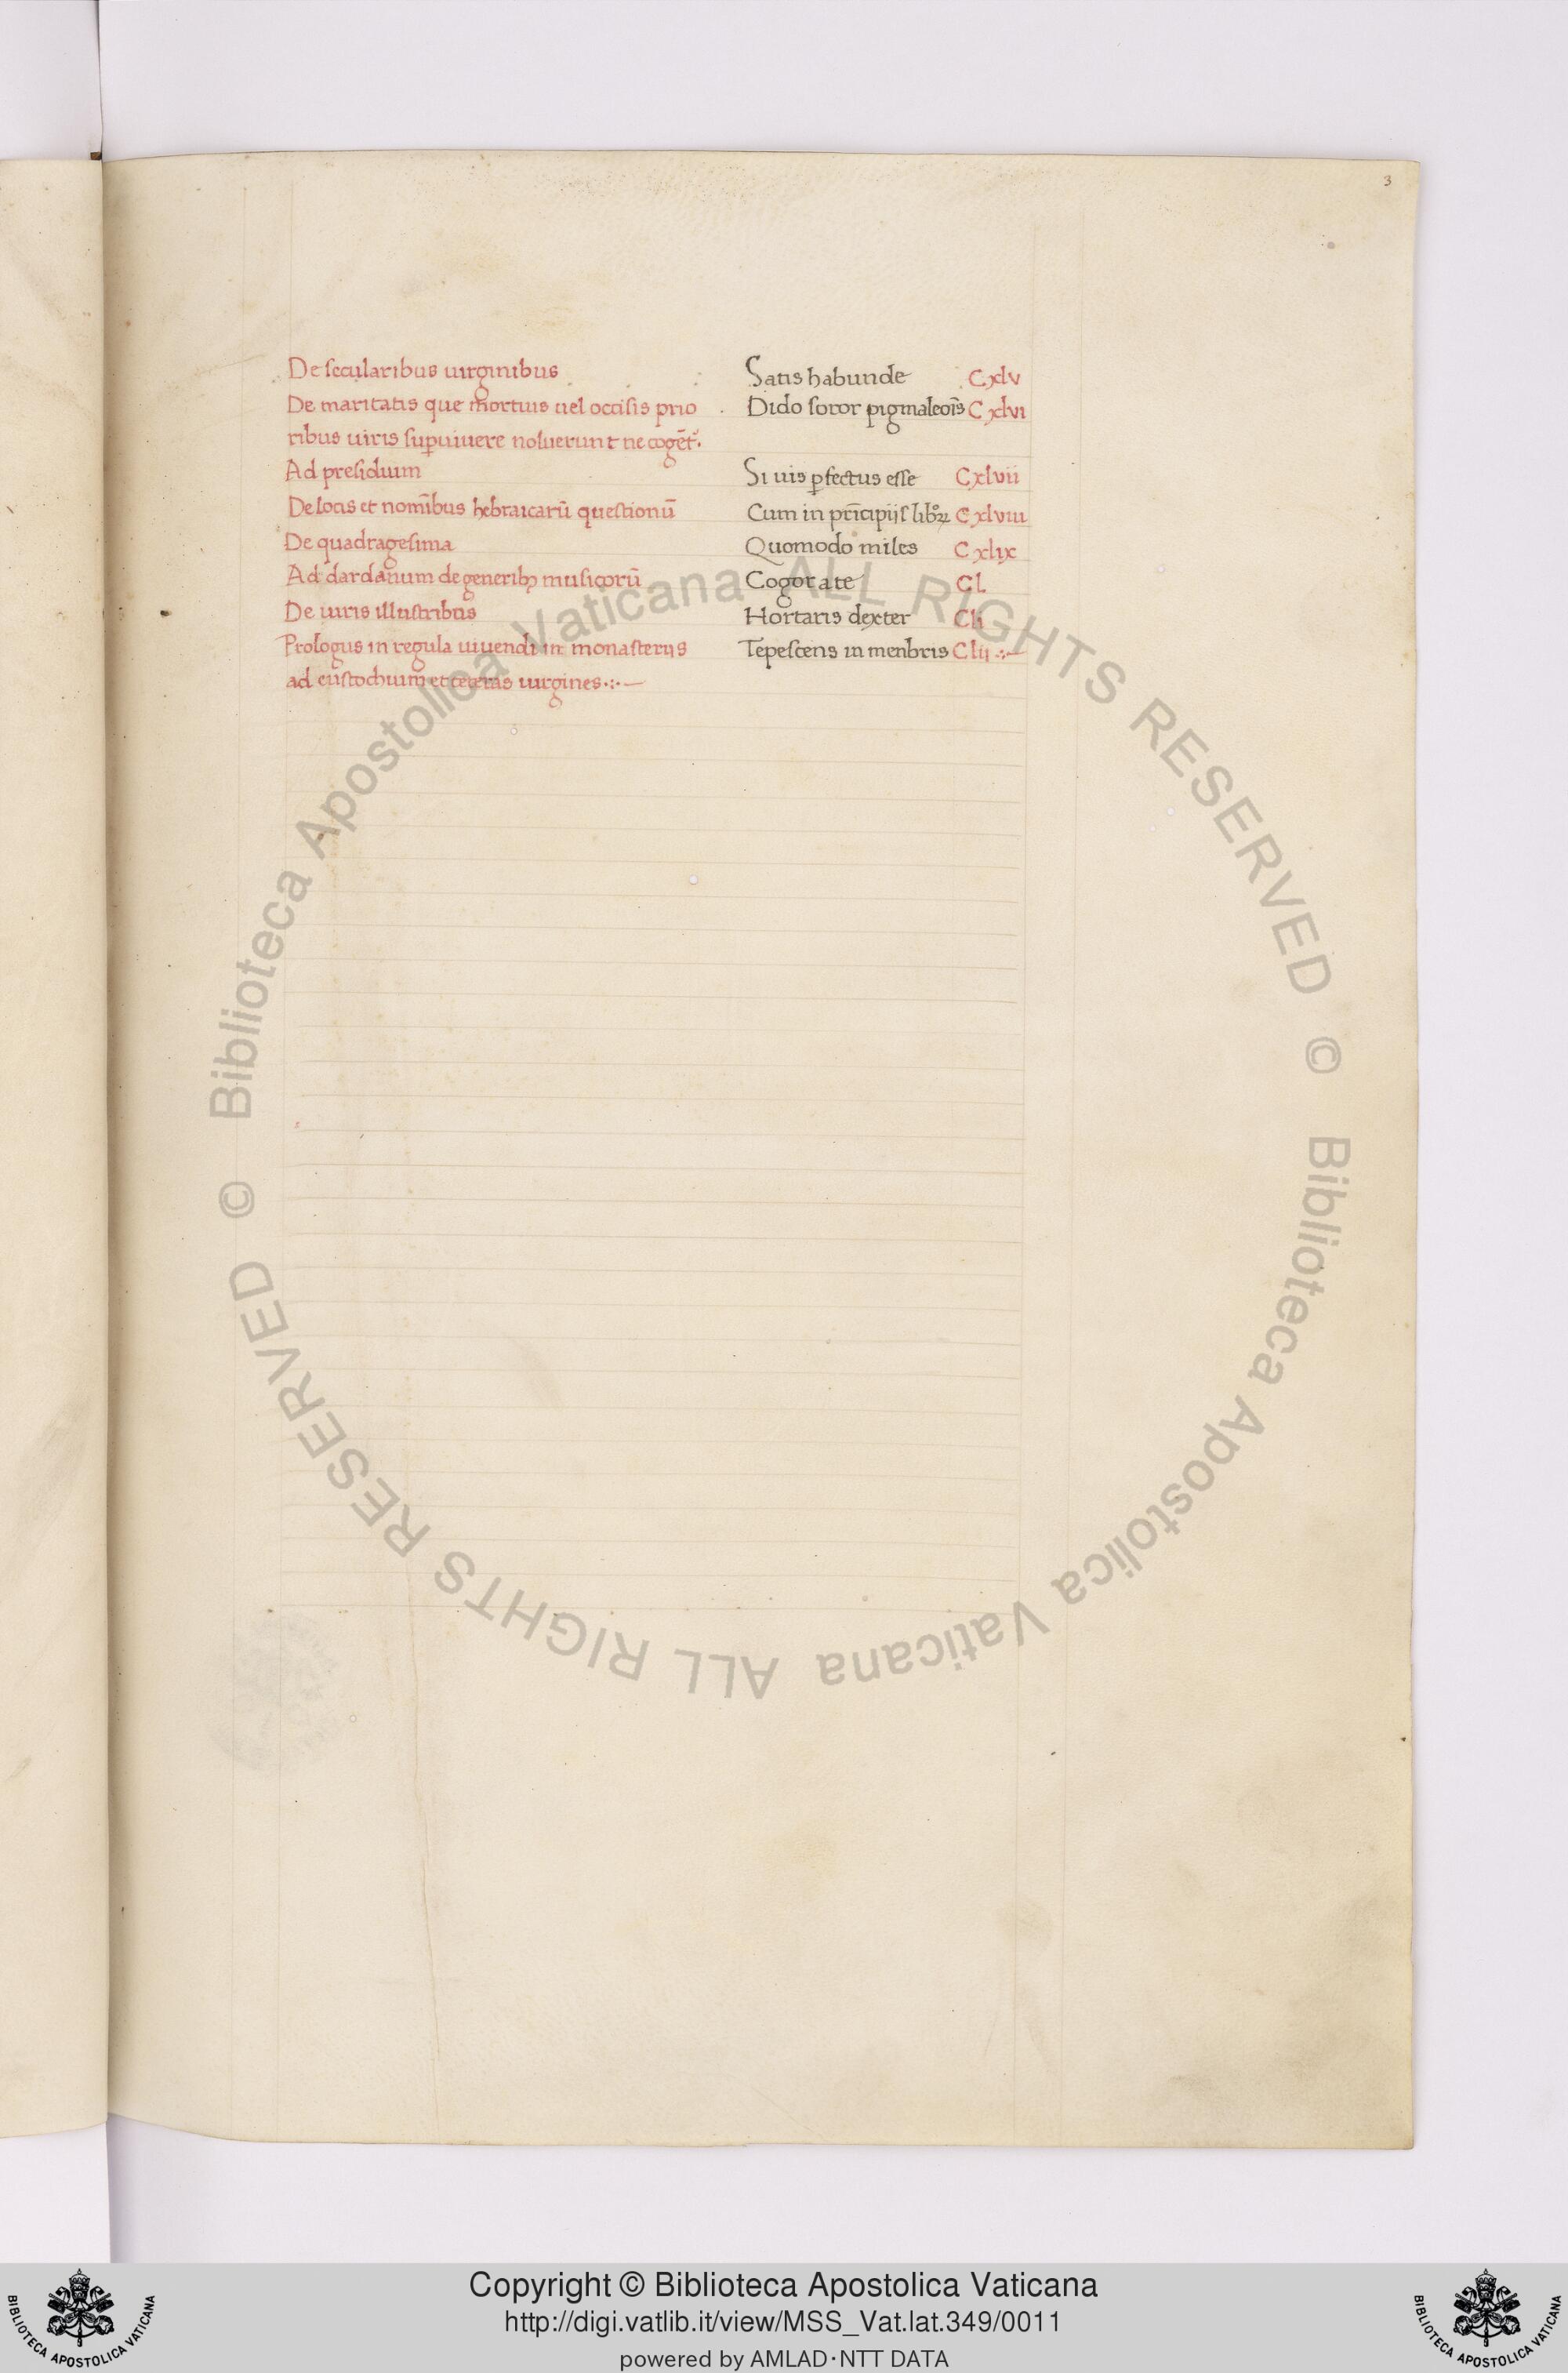 3
De secularibus uirginibus Satis habunde Cxlv
De maritatis que mortuis uel occisis prio Dido soror pigmaleoīs Cxlvi
ribus uiris suꝑuiuere noluerunt ne cogēt᷑.
Ad presidium Si uis ꝑfectus esse Cxlvii
De locis et nomībus hebraicarū questionū Cum in prīcipijs libꝝ Cxlviii
De quadragesima Quomodo miles Cxlix
Ad dardanum de generibꝫ musicorū Cogor a te CL
De uiris illustribus Hortaris dexter Cli
Prologus in regula uiuendi in monasterijs Tepescens in menbris Clii .:~
ad eustochium et ceteras uirgines .:~
© Biblioteca Apostolica Vaticana ALL RIGHTS RESERVED
© Biblioteca Apostolica Vaticana ALL RIGHTS RESERVED
BIBLIOTECA APOSTOLICA VATICANA
Copyright © Biblioteca Apostolica Vaticana
http://digi.vatlib.it/view/MSS_Vat.lat.349/0011
powered by AMLAD·NTT DATA
BIBLIOTECA APOSTOLICA VATICANA